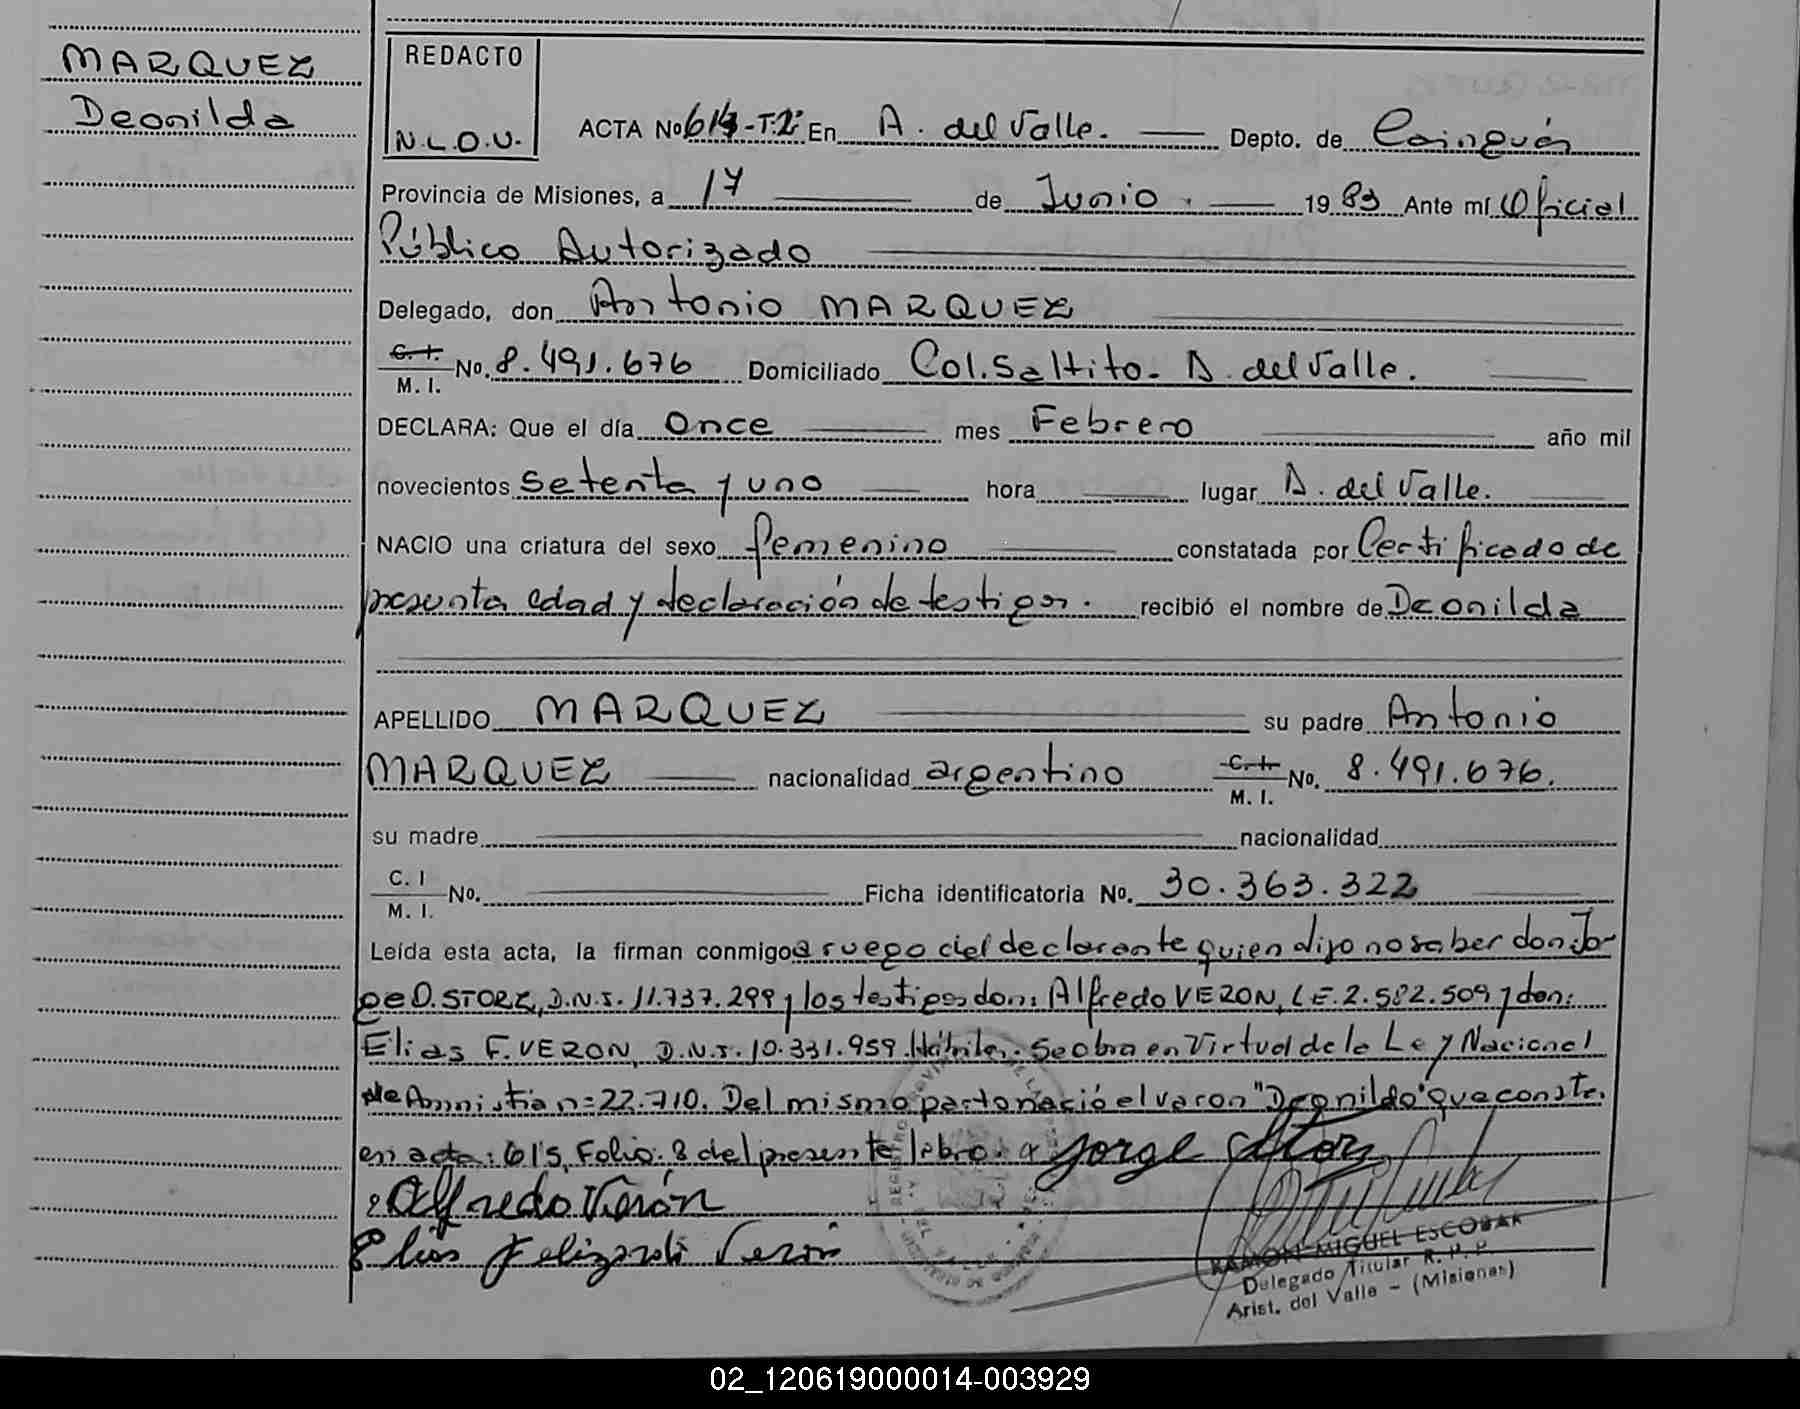 MARQUEZ
Deonilda
REDACTO
N.L.O.U.
ACTA No 614-T:2º En A. del Valle. Depto. de Cainguás
Provincia de Misiones, a 17 de Junio. 1983 Ante mí Oficial
Público Autorizado
Delegado, don Antonio MARQUEZ
C. I.
M. I.
No. 8.491.676 Domiciliado Col. Saltito - A. del Valle.
DECLARA: Que el día Once mes Febrero año mil
novecientos setenta y uno hora lugar A. del Valle.
NACIO una criatura del sexo femenino constatada por Certificado de
presunta edad y declaración de testigos. recibió el nombre de Deonilda
APELLIDO MARQUEZ su padre Antonio
MARQUEZ nacionalidad argentino C. I. M. I. No. 8.491.676.
su madre nacionalidad
C. I M. I. No. Ficha identificatoria No. 30.363.322
Leída esta acta, la firman conmigo a ruego del declarante quien dijo no saber don: Jor-
ge D. STORZ, D.N.I. 11.737.299 y los testigos don: Alfredo VERON, L.E. 2.582.509 y don:
Elias F. VERON, D.N.I. 10.331.959. Hábiles. Se obra en Virtud de la Ley Nacional
de Amnistia nº 22.710. Del mismo parto nació el varon "Deonildo" que conste.
en acta: 615, Folio: 8 del presente libro.
Jorge Storz
Alfredo Verón
Elias Felizardo Veron
RAMON MIGUEL ESCOBAR
Delegado Titular R. P. P.
Arist. del Valle - (Misiones)
02_120619000014-003929